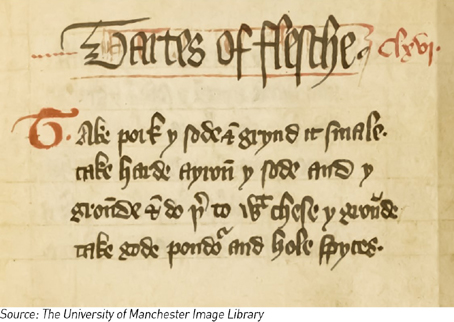 Tartes of flesche. clxvi.
Take pork y sode & grynd it smale.
take harde ayron y sode and y
gronde & do þr to wt chese y gronde
take gode pondor and hole spyces.
Source: The University of Manchester Image Library